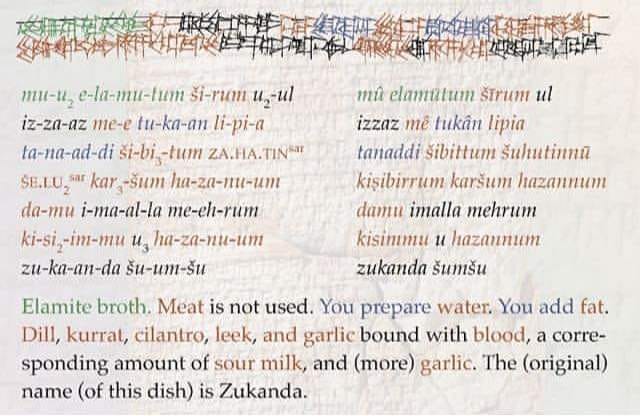 mu-u₂ e-la-mu-tum ši-rum u₂-ul
iz-za-az me-e tu-ka-an li-pi-a
ta-na-ad-di ši-bi₅-tum ZA.HA.TINˢᵃʳ
ŠE.LU₂ˢᵃʳ kar₃-šum ha-za-nu-um
da-mu i-ma-al-la me-eh-rum
ki-si₂-im-mu u₃ ha-za-nu-um
zu-ka-an-da šu-um-šu
mû elamūtum šīrum ul
izzaz mê tukân lipia
tanaddi šibittum šuhutinnū
kiṣibirrum karšum hazannum
damu imalla mehrum
kisimmu u hazannum
zukanda šumšu
Elamite broth. Meat is not used. You prepare water. You add fat.
Dill, kurrat, cilantro, leek, and garlic bound with blood, a corre-
sponding amount of sour milk, and (more) garlic. The (original)
name (of this dish) is Zukanda.